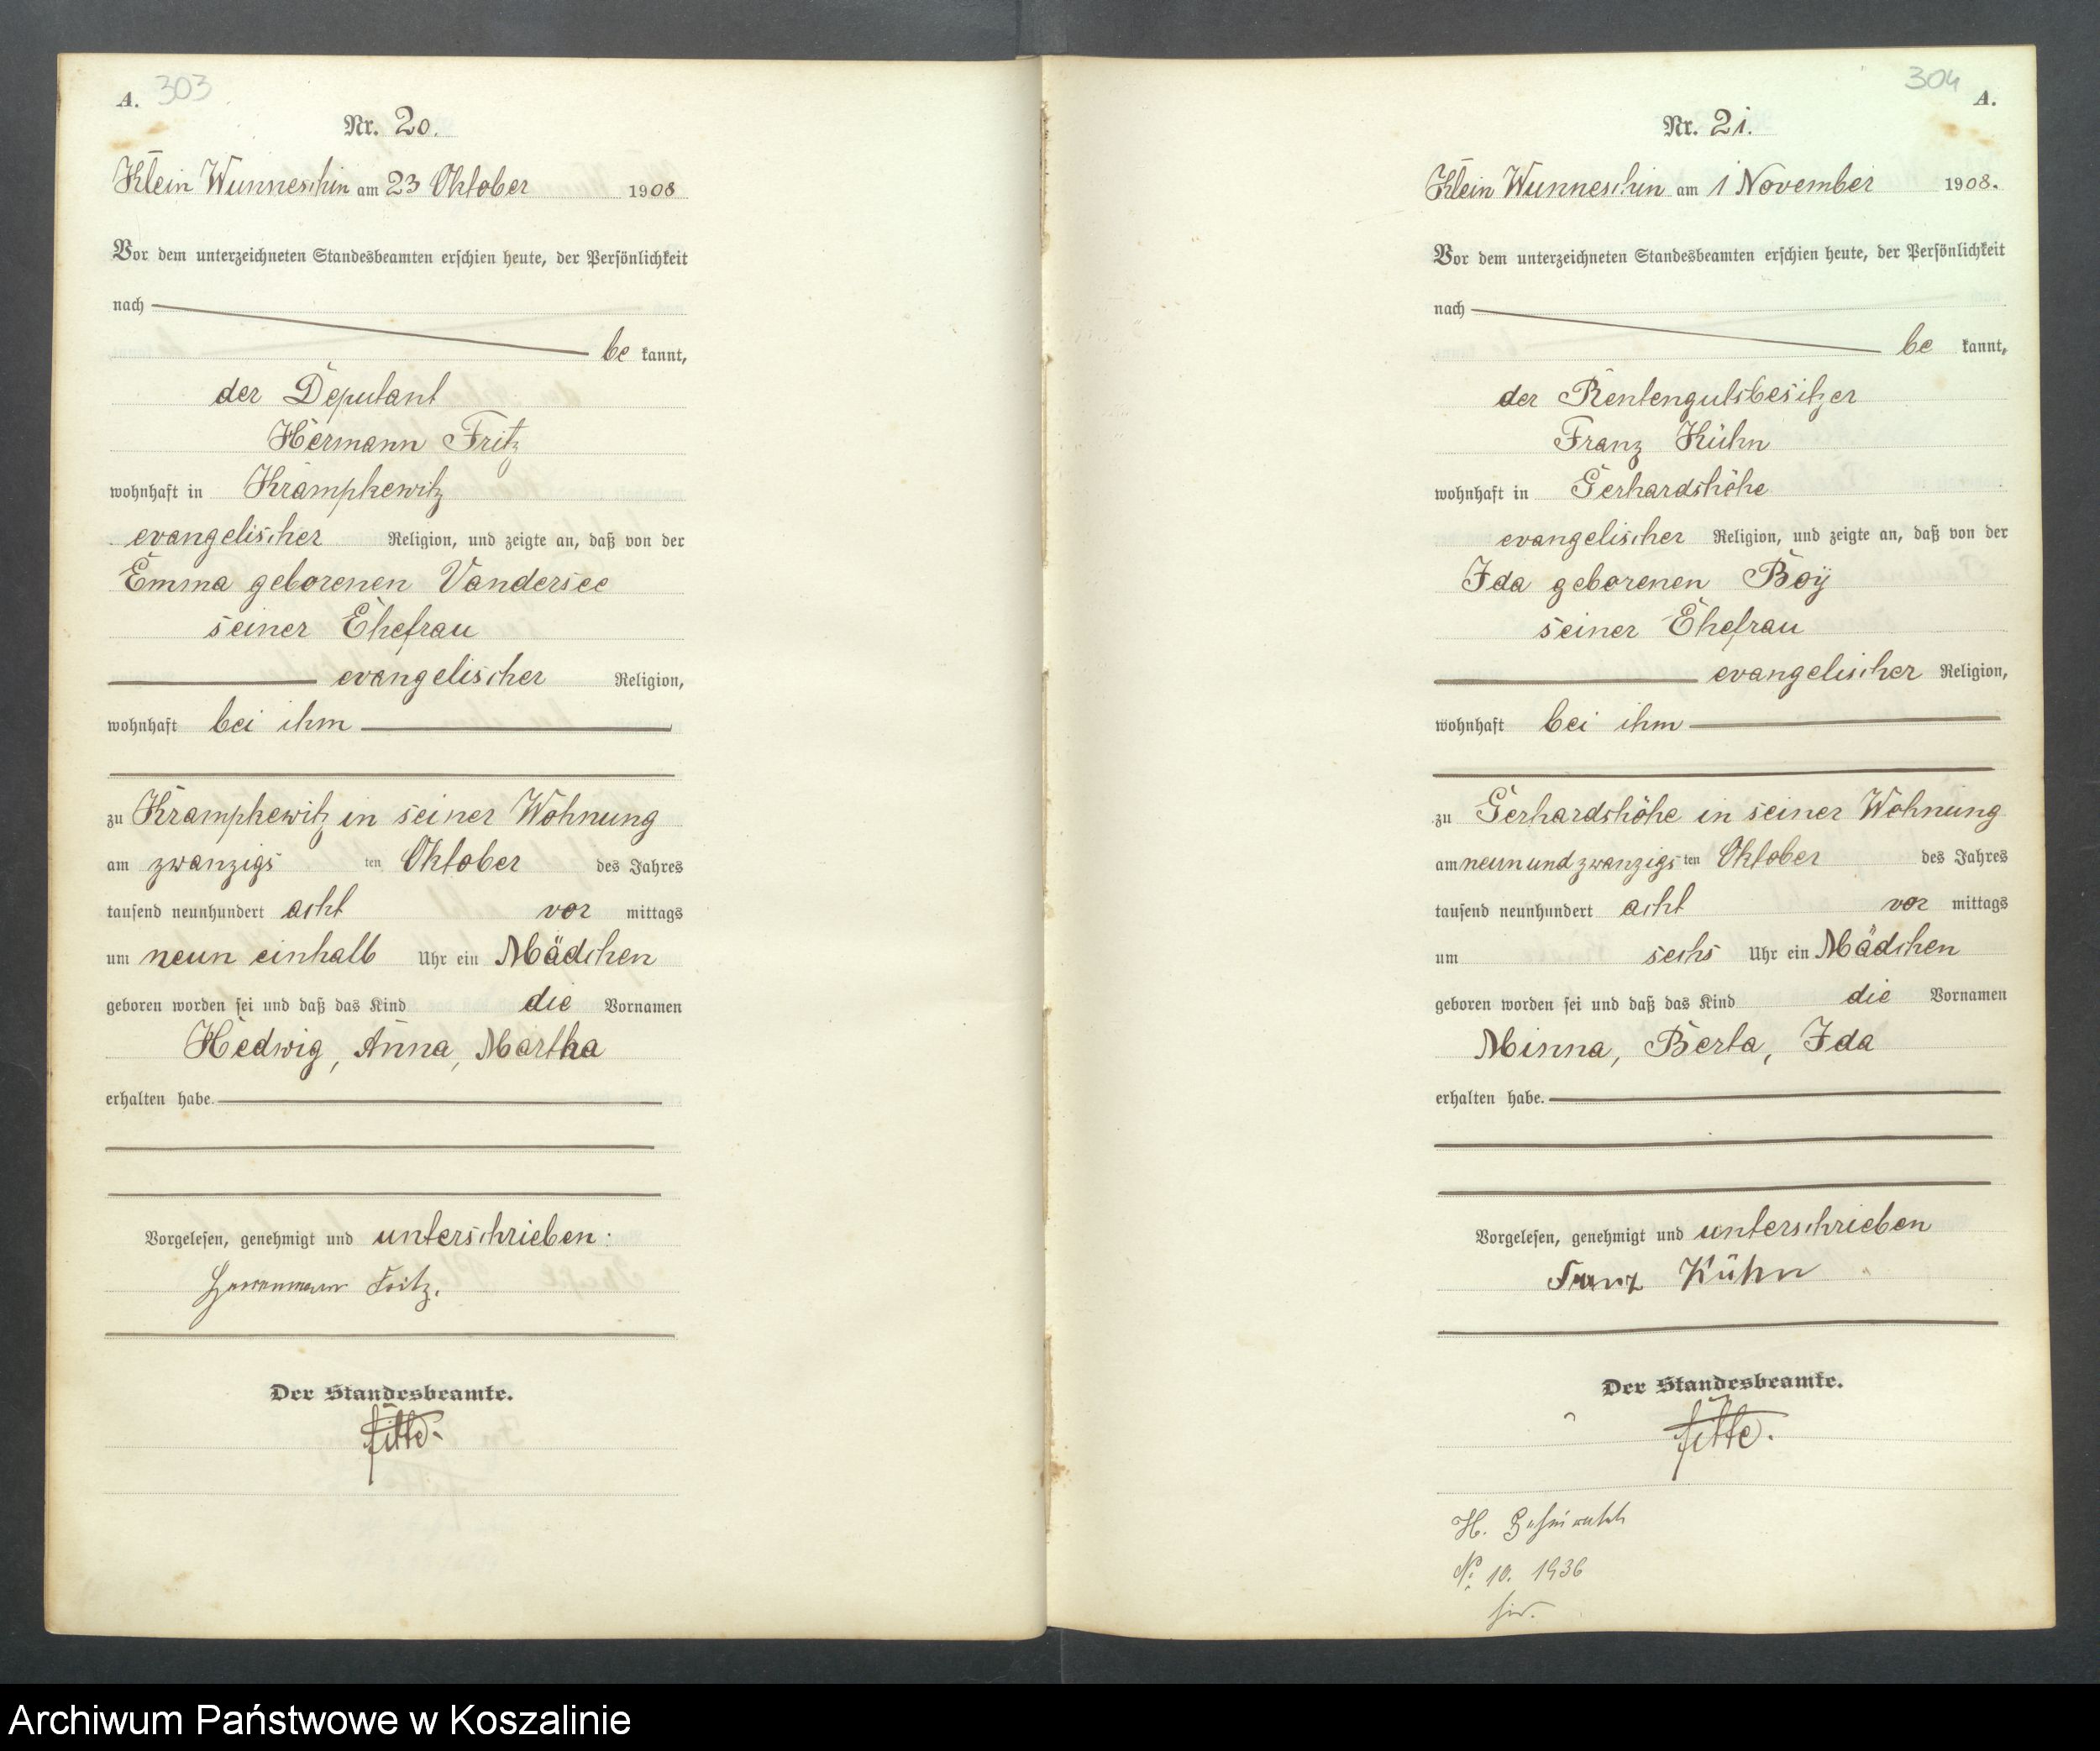 A. 303
Nr. 20.
Klein Wunneschin am 23 Oktober 1908
Vor dem unterzeichneten Standesbeamten erschien heute, der Persönlichkeit
nach
be kannt,
der Deputant
Hermann Fritz
wohnhaft in Krampkewitz
evangelischer Religion, und zeigte an, daß von der
Emma geborenen Vandersee
seiner Ehefrau
evangelischer Religion,
wohnhaft bei ihm
zu Krampkewitz in seiner Wohnung
am zwanzigs ten Oktober des Jahres
tausend neunhundert acht vor mittags
um neun einhalb Uhr ein Mädchen
geboren worden sei und daß das Kind die Vornamen
Hedwig, Anna, Martha
erhalten habe.
Vorgelesen, genehmigt und unterschrieben:
Herrmann Fritz.
Der Standesbeamte.
304 A.
Nr. 21.
Klein Wunneschin am 1 November 1908.
Vor dem unterzeichneten Standesbeamten erschien heute, der Persönlichkeit
nach
be kannt,
der Rentengutsbesitzer
Franz Kühn
wohnhaft in Gerhardshöhe
evangelischer Religion, und zeigte an, daß von der
Ida geborenen Boÿ
seiner Ehefrau
evangelischer Religion,
wohnhaft bei ihm
zu Gerhardshöhe in seiner Wohnung
am neunundzwanzigs ten Oktober des Jahres
tausend neunhundert acht vor mittags
um sechs Uhr ein Mädchen
geboren worden sei und daß das Kind die Vornamen
Minna, Berta, Ida
erhalten habe.
Vorgelesen, genehmigt und unterschrieben
Franz Kühn
Der Standesbeamte.
H.
No 10. 1936
Archiwum Państwowe w Koszalinie